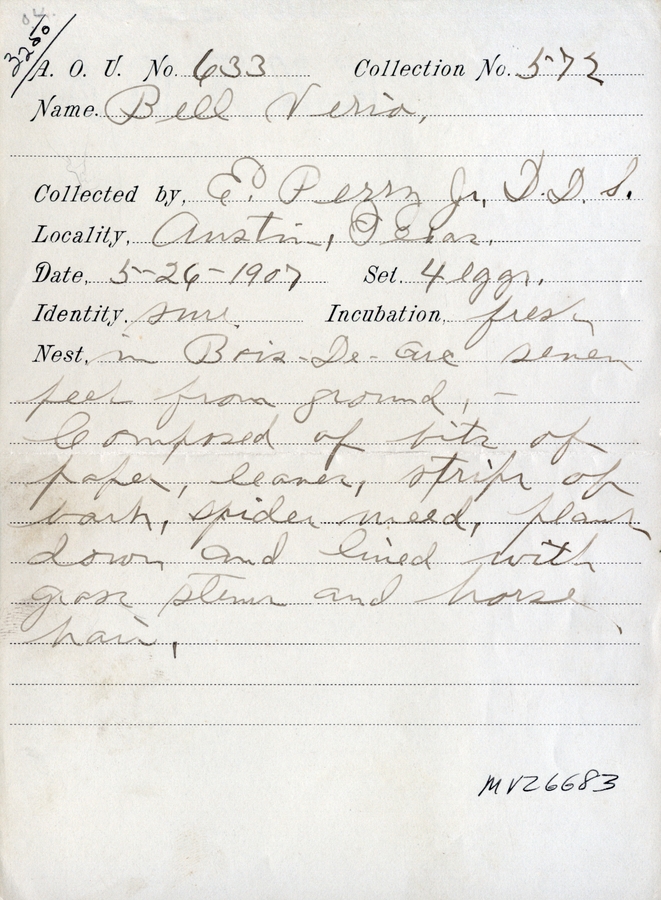 A. O. U. No. 633 Collection No. 572
Name. Bell Verio,
Collected by, E. Perry Jr, D.D.S.
Locality, Austin, Texas.
Date, 5-26-1907 Set. 4 eggs.
Identity. sure. Incubation, fresh
Nest, in Bois-De-Arc seven
feet from ground, -
Composed of bits of
paper, leaves, strips of
bark, spider weed, plant
down and lined with
grass stems and horse
hair.
MVZ6683